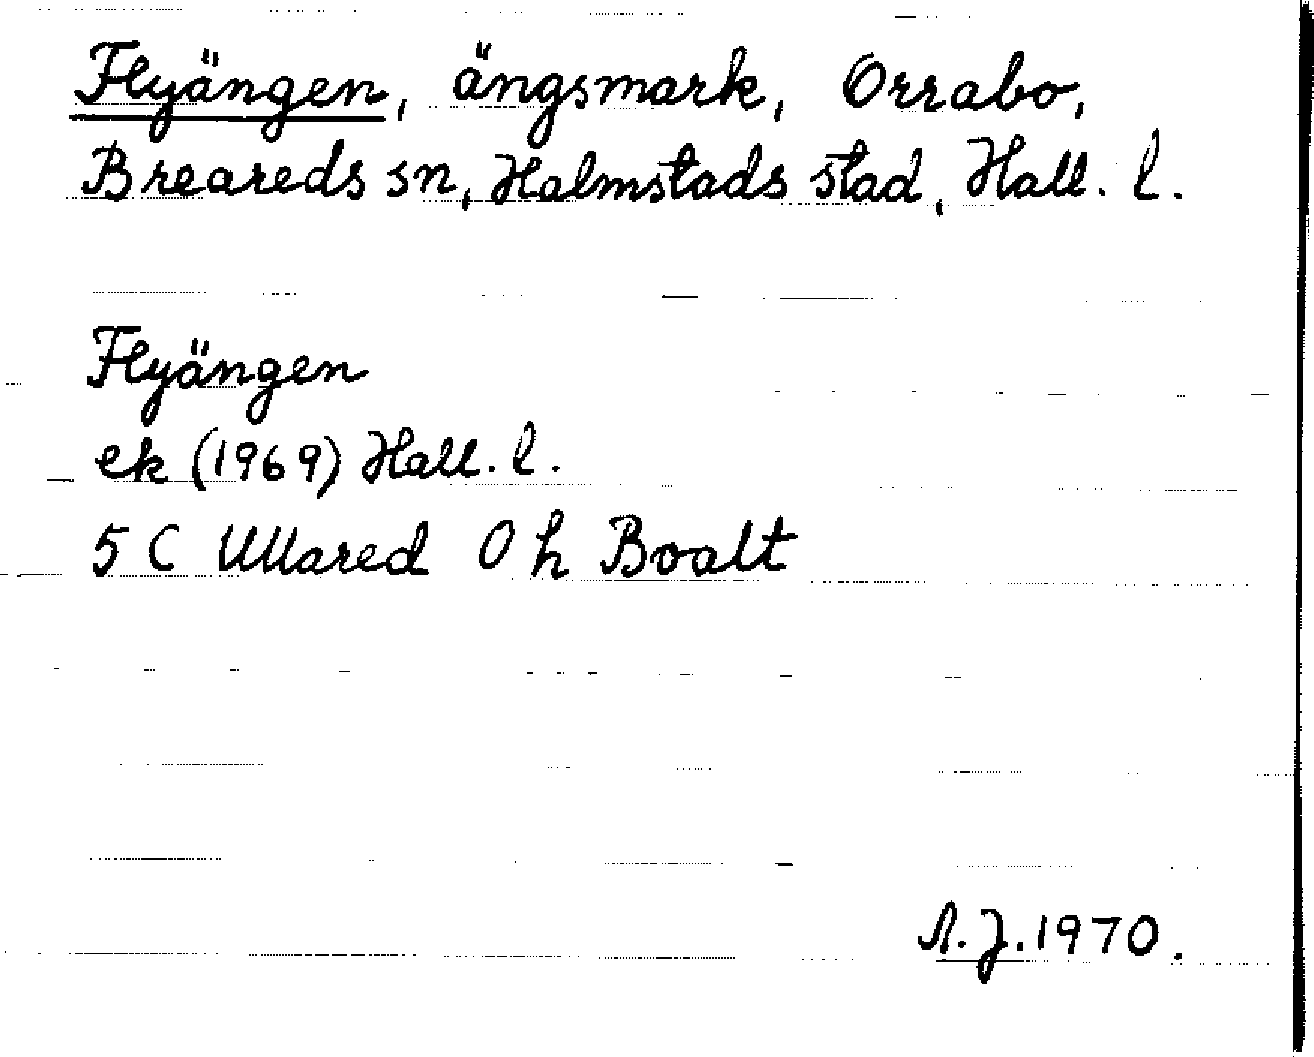 Flyängen, ängsmark, Orrabo,
Breareds sn, Halmstads stad, Hall. l.
Flyängen
ek (1969) Hall. l.
5 C Ullared O h Boalt
A. J. 1970.